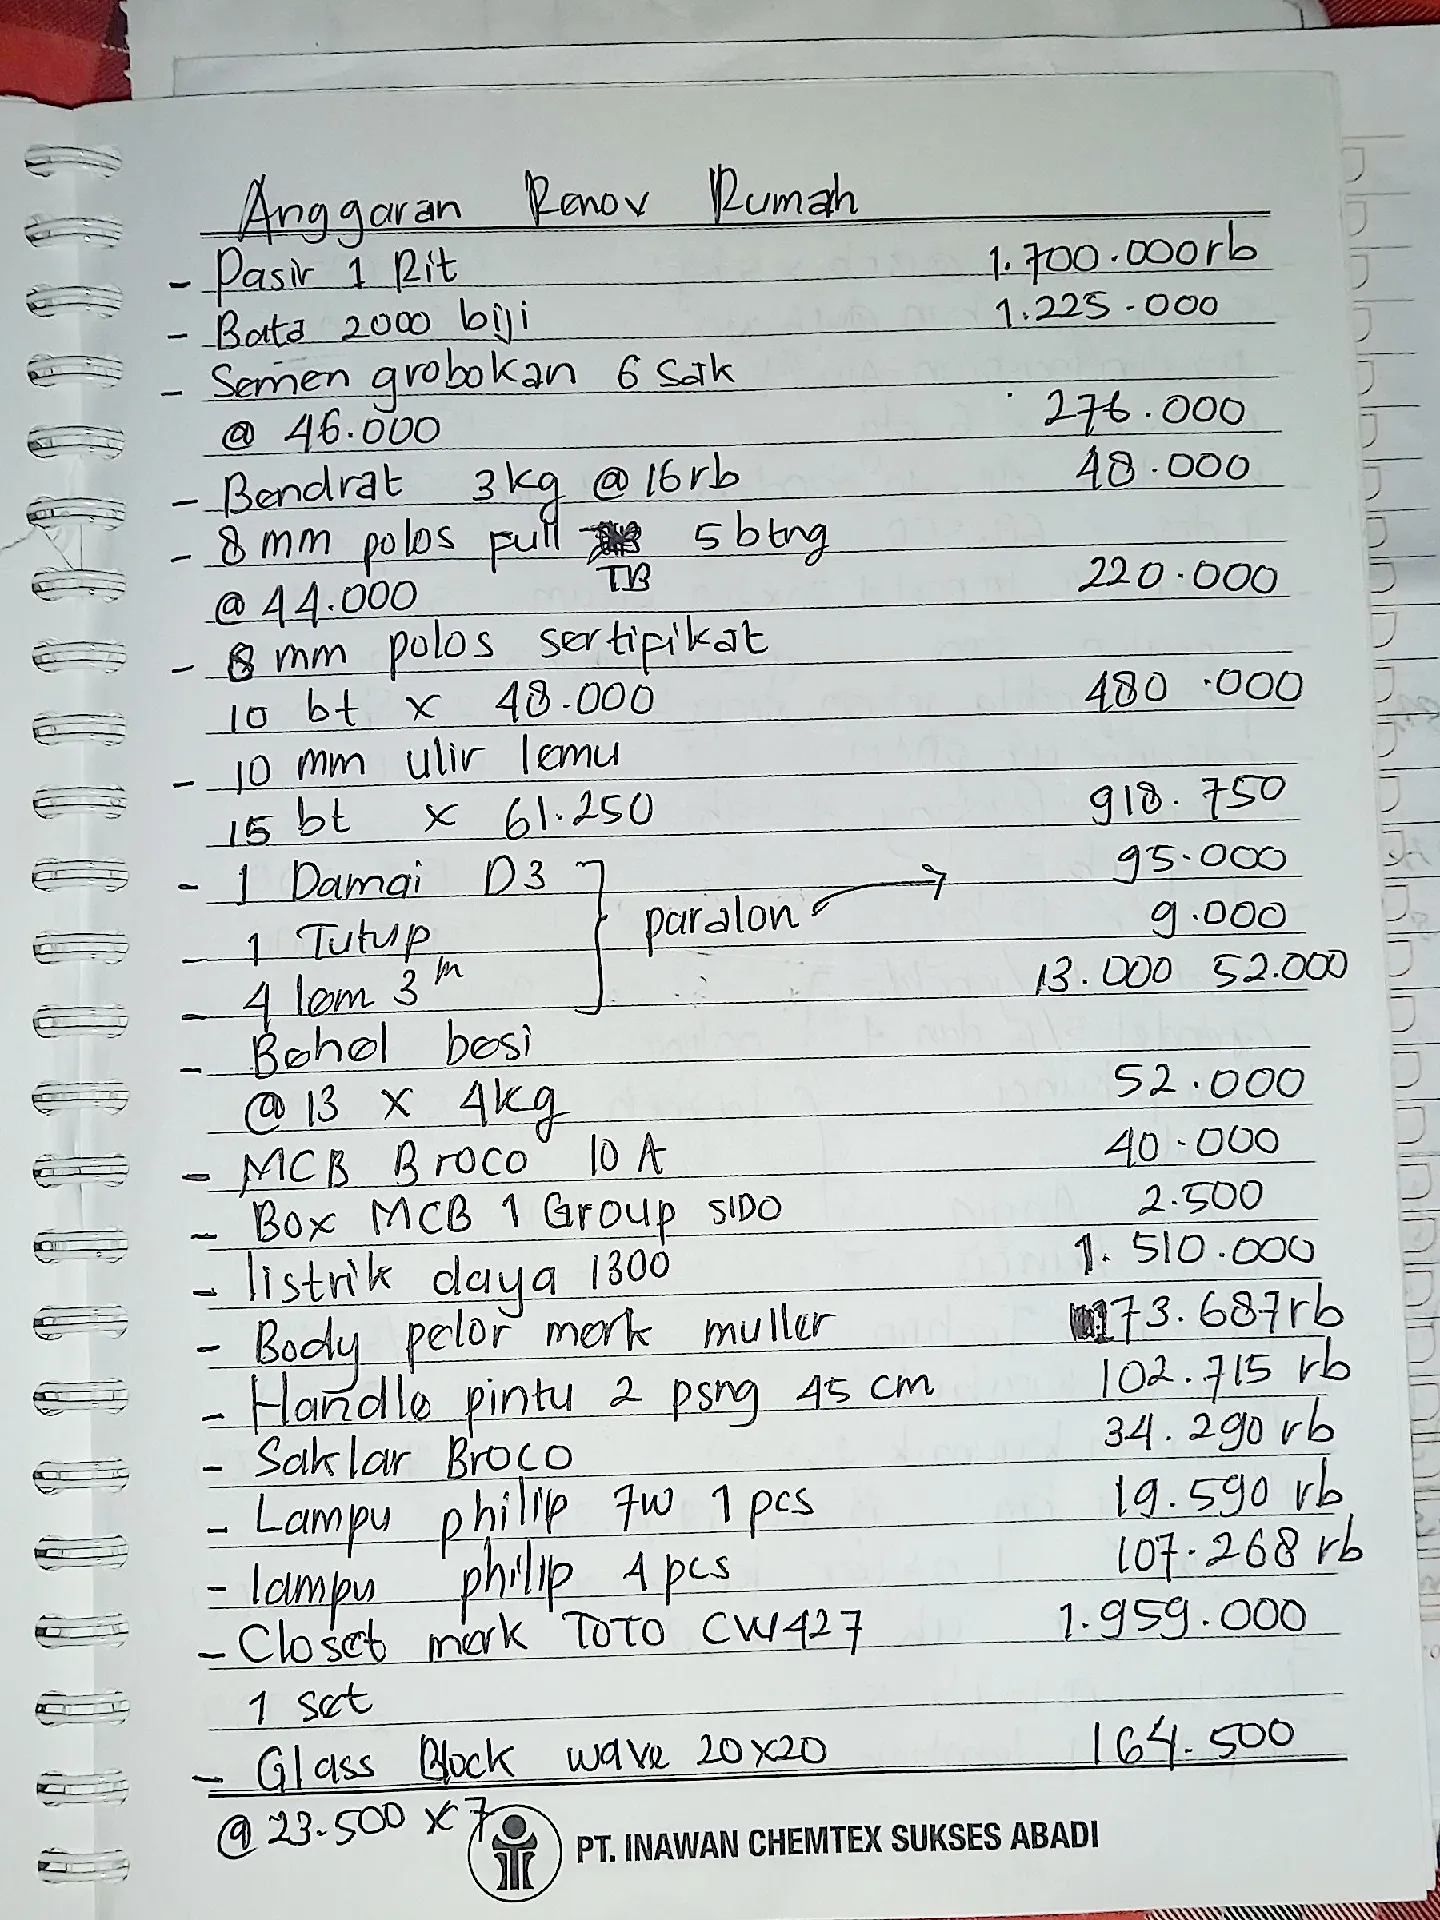 Anggaran Renov Rumah
- Pasir 1 Rit 1.700.000rb
- Bata 2000 biji 1.225.000
- Semen grobokan 6 Sak
@ 46.000 276.000
- Bendrat 3kg @ 16rb 48.000
- 8 mm polos full TB 5 btng
@ 44.000 220.000
- 8 mm polos sertifikat
10 bt x 48.000 480.000
- 10 mm ulir lemu
15 bt x 61.250 918.750
- 1 Damai D3 paralon → 95.000
- 1 Tutup 9.000
- 4 lem 3m 13.000 52.000
- Behel besi
@ 13 x 4kg 52.000
- MCB Broco 10 A 40.000
- Box MCB 1 Group SIDO 2.500
- listrik daya 1300 1.510.000
- Body pelor merk muller 173.687rb
- Handle pintu 2 psng 45 cm 102.715 rb
- Saklar Broco 34.290 rb
- Lampu philip 7w 1 pcs 19.590 rb
- lampu philip 4 pcs 107.268 rb
- Closet merk TOTO CW427 1.959.000
1 set
- Glass Block wave 20x20 164.500
@ 23.500 x 7
PT. INAWAN CHEMTEX SUKSES ABADI